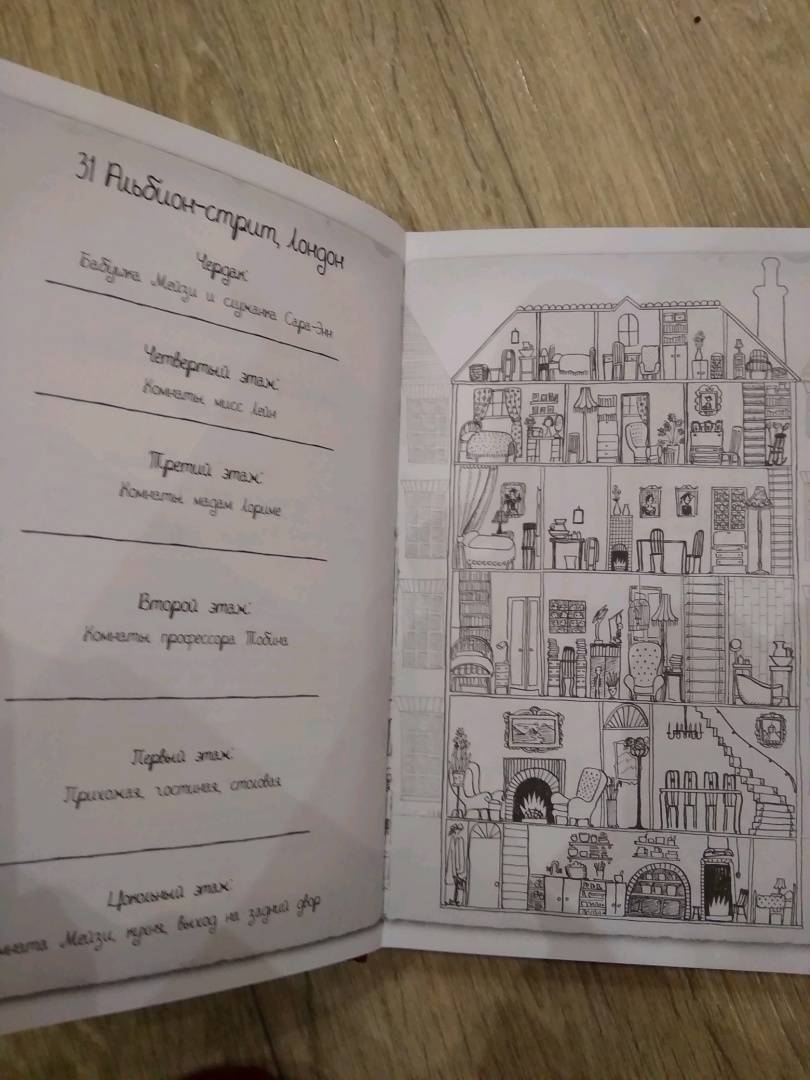 31 Альбион-стрит, Лондон
Чердак:
Бабушка Мейзи и служанка Сара-Энн
Четвертый этаж:
Комнаты мисс Лейн
Третий этаж:
Комнаты мадам Лориме
Второй этаж:
Комнаты профессора Тобина
Первый этаж:
Прихожая, гостиная, столовая
Цокольный этаж:
Мейзи, кухня, выход на задний двор